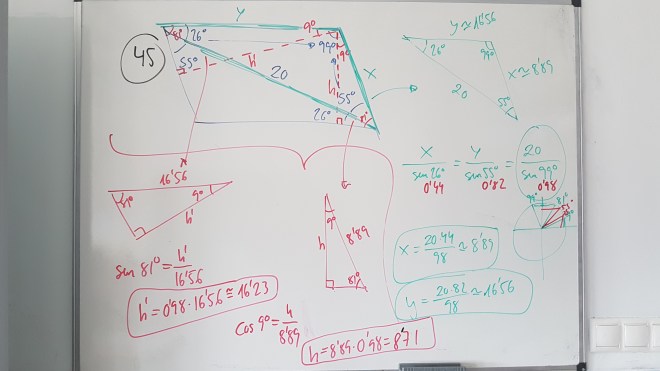 45
y
81°
26°
9°
99°
9°
55°
h'
20
h
x
55°
26°
81°
y≃16'56
26°
99°
x≃8'89
20
55°
x/sen 26° = y/sen 55° = 20/sen 99°
0'44 0'82 0'98
x = 20·44/98 ≃ 8'89
y = 20·82/98 ≃ 16'56
16'56
81°
9°
h'
sen 81° = h'/16'56
h' = 0'98·16'56 ≅ 16'23
9°
h
8'89
81°
cos 9° = h/8'89
h = 8'89·0'98 = 8'71